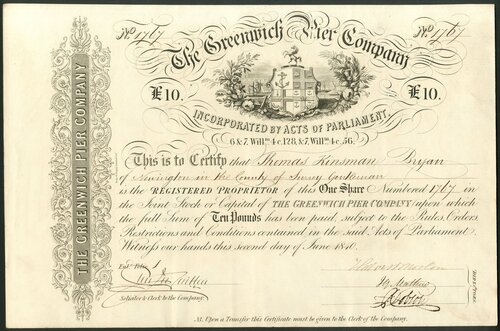 No. 1767
No. 1767
The Greenwich Pier Company
£10.
£10.
INCORPORATED BY ACTS OF PARLIAMENT.
6 & 7, Will.m 4 c. 128, & 7, Will.m 4 c. 56.
THE GREENWICH PIER COMPANY
This is to Certify that Thomas Kinsman Bryan
of Newington in the County of Surrey Gentleman
is the REGISTERED PROPRIETOR of this One Share Numbered 1767 in
the Joint Stock or Capital of THE GREENWICH PIER COMPANY upon which
the full Sum of Ten Pounds has been paid, subject to the Rules, Orders,
Restrictions and Conditions contained in the said Acts of Parliament.
Witness our hands this second day of June 1840.
Solicitor & Clerk to the Company.
N.B. Upon a Transfer this Certificate must be given to the Clerk of the Company.